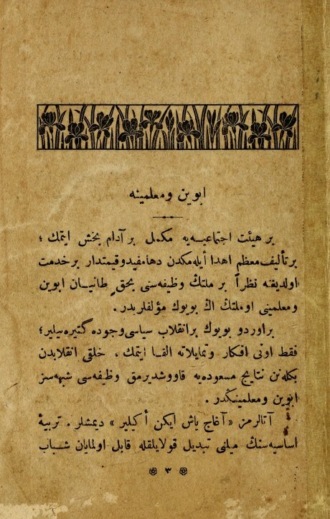 ابوين ومعلمينه
بر هيئت اجتماعيه‌يه مكمل بر آدام بخش ايتمك ؛
بر تأليف معظم اهدا ايله‌مكدن دها مفيد وقيمتدار بر خدمت
اولديغنه نظراً بر ملتك وظيفه‌سنى بحق طانيان ابوين
ومعلمينى او ملتك اڭ بويوك مؤلفلريدر .
بر اوردو بويوك بر انقلاب سياسى وجوده كتيره‌بيلير ؛
فقط اونى افكار وتمايلاته القا ايتمك ، خلقى انقلابدن
بكله‌نن نتايج مسعوديه قاووشديرمق وظيفه‌سى شبهه‌سز
ابوين ومعلمينكدر .
آتالرمز « آغاج ياش ايكن اكيلير » ديمشلر . تربيۀ
اساسيه‌سنك مبلنى تبديل قولايلقله قابل اولمايان شباب
٣